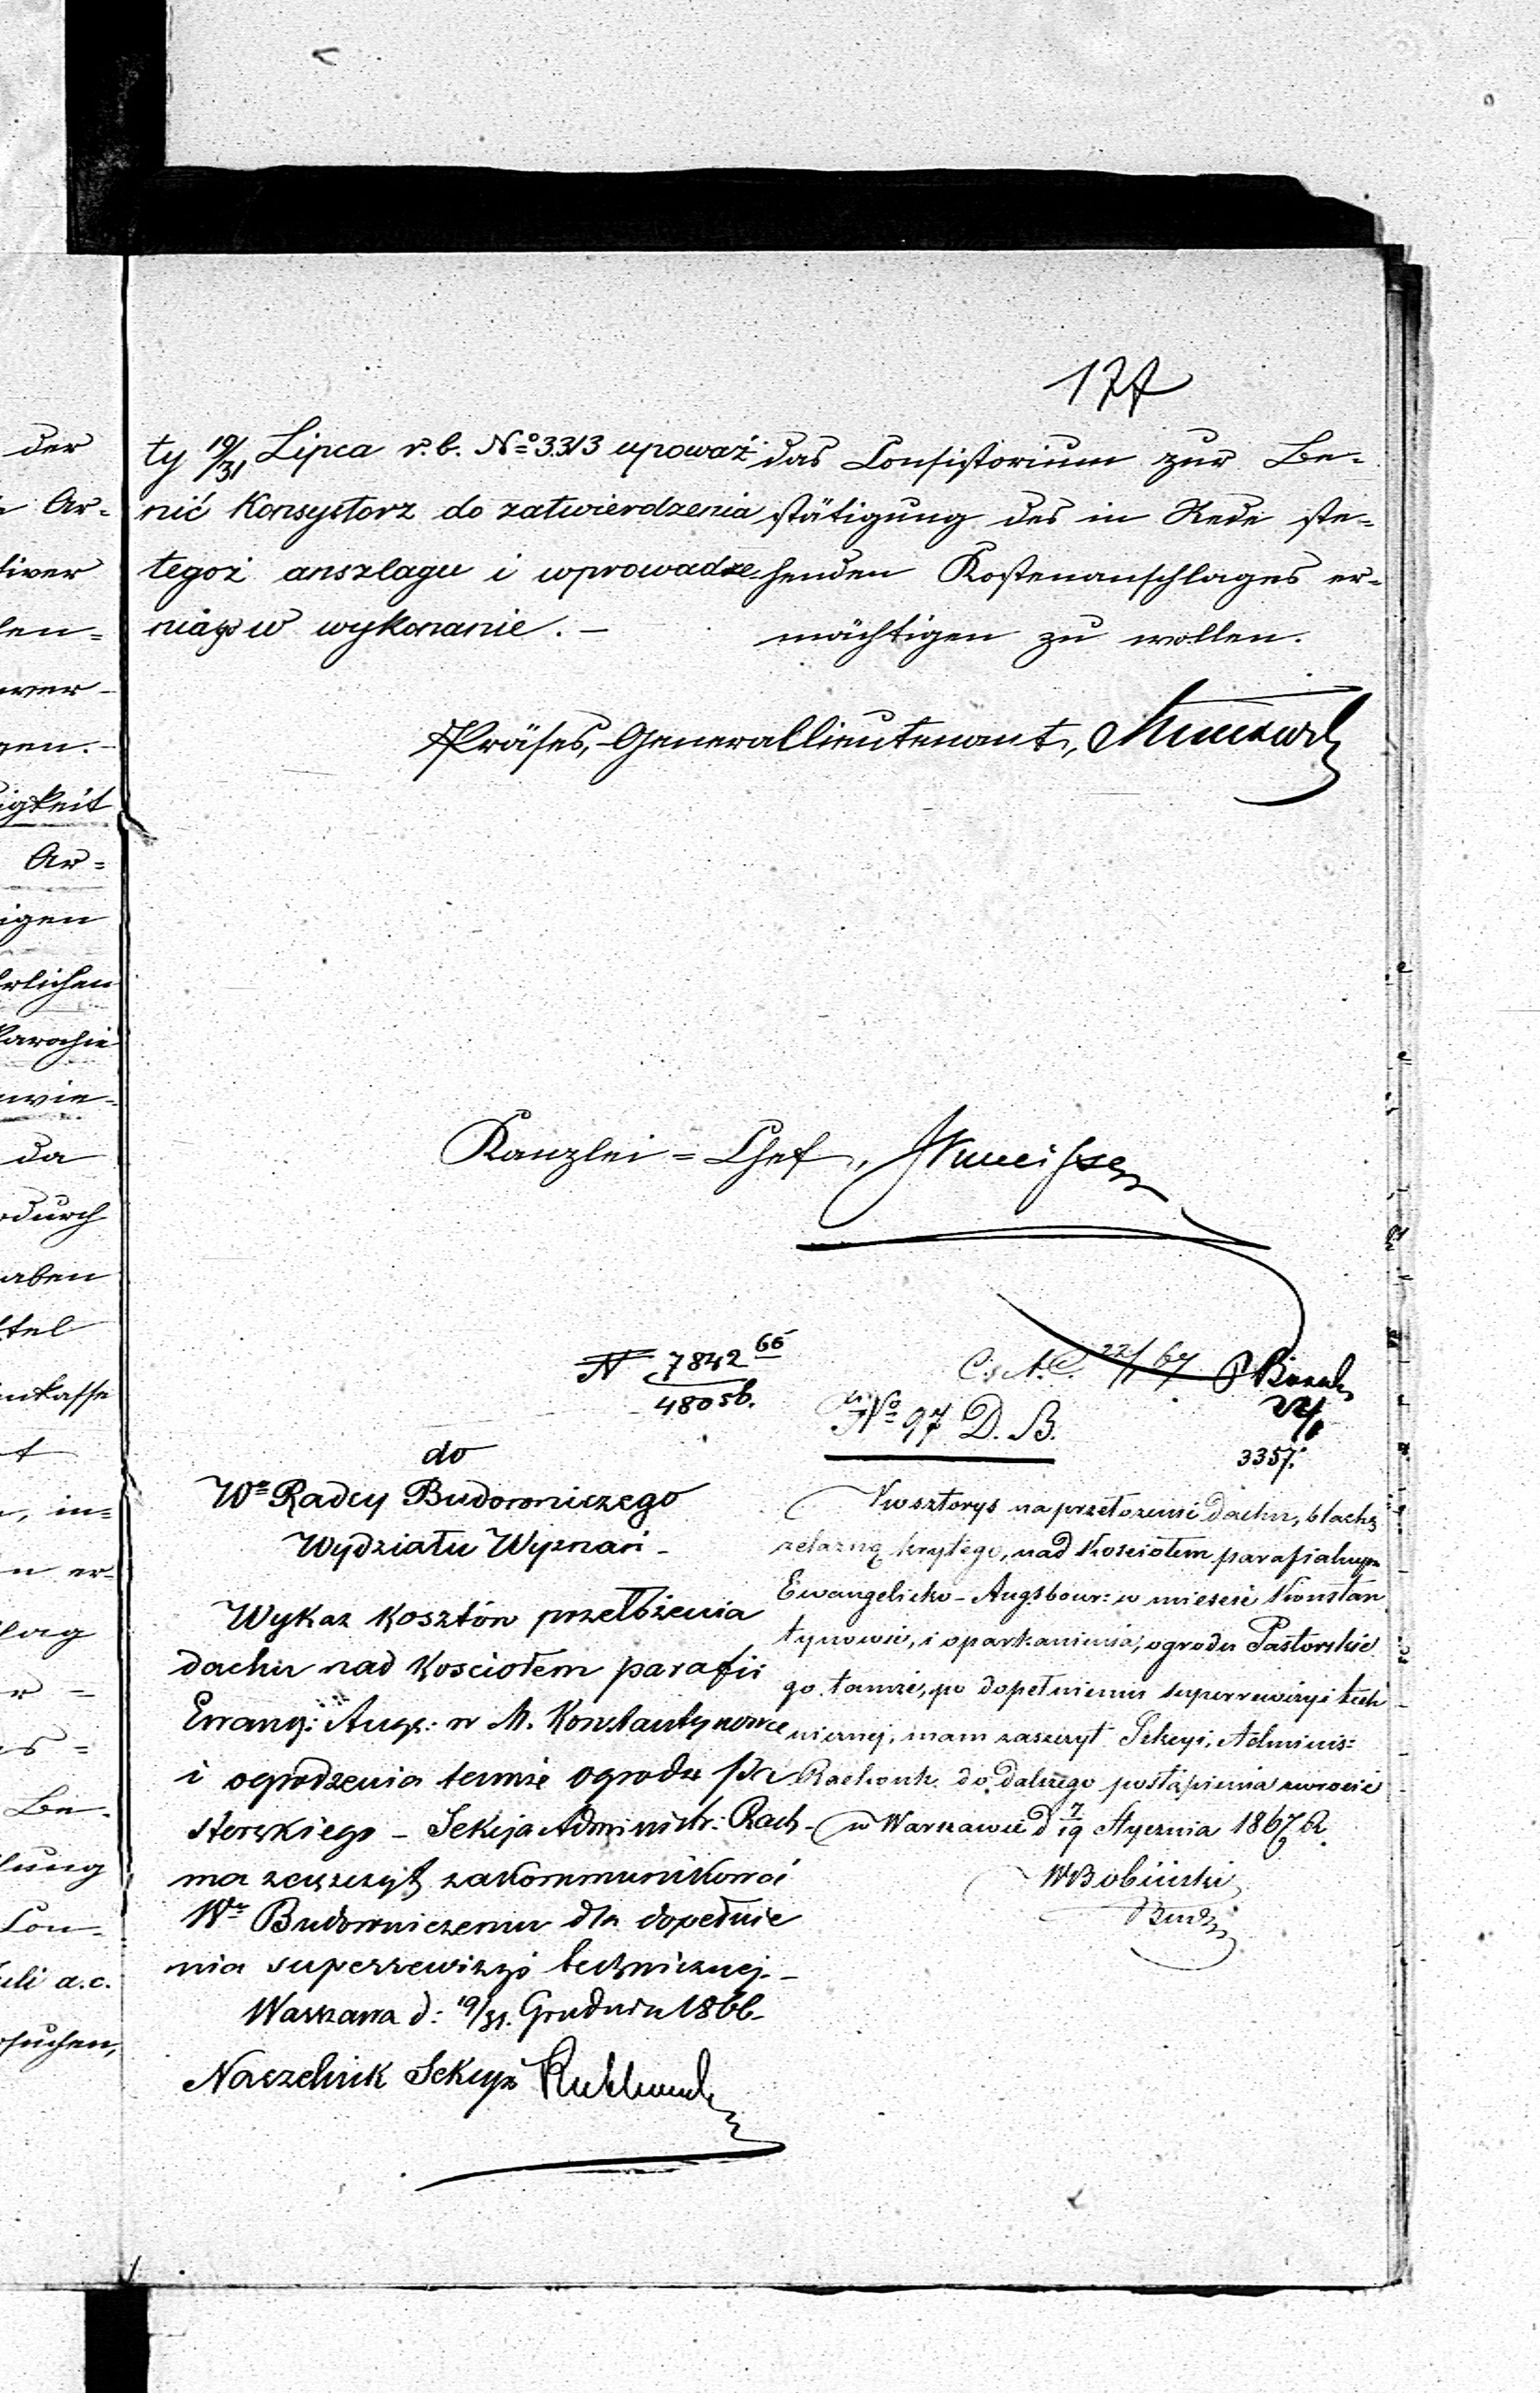 177
ty 19/31 Lipca r. b. No 3313 upoważ
nić Konsystorz do zatwierdzenia
tegoż anszlagu i wprowadze-
nia go w wykonanie. –
das Consistorium zur Be-
stätigung des in Rede ste-
henden Kostenanschlages er-
mächtigen zu wollen.
Präses, Generallieutenant,
Kanzlei-Chef,
N 7842 66
4805b.
22/1 67
No 97 D. B.
3357.
do
Wo Radcy Budowniczego
Wydziału Wyznań –
Wykaz kosztów przełożenia
dachu nad Kosciołem parafii
Ewang: Augs: w M. Konstantynowie
i ogrodzenia tamże ogrodu Pa-
storskiego – Sekcja Administr: Rach-
ma zaszczyt zakommunikować
Wu Budowniczemu dla dopełnie
nia superrewizyi technicznej. –
Warszawa d: 19/31. Grudnia 1866.
Naczelnik Sekcyi
Kosztorys na przełożenie dachu, blachą
żelazną krytego, nad Kosciołem parafialnym
Ewangelicko-Augsbour: w mieście Konstan
tynowie, i oparkanienia, ogrodu Pastorskie
go tamże, po dopełnieniu superrewizyi tech
nicznej, mam zaszczyt Sekcyi, Adminis:
Rachonk. do dalszego postąpienia zwrócić
w Warszawie d 7/19 Stycznia 1867 R.
WBobiński
Bud:
der
Ar-
igkeit
Ar-
durch
aben
in-
Be-
uli a.c.